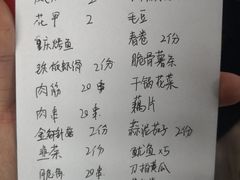 花甲 2 毛豆
重庆烤鱼 春卷 2份
铁板虾滑 2份 脆骨薯条
肉筋 20串 干锅花菜
肉串 20串 藕片
金针菇 2份 蒜泥茄子 2份
韭菜 2份 鱿鱼×5
脆骨 20串 刀拍黄瓜